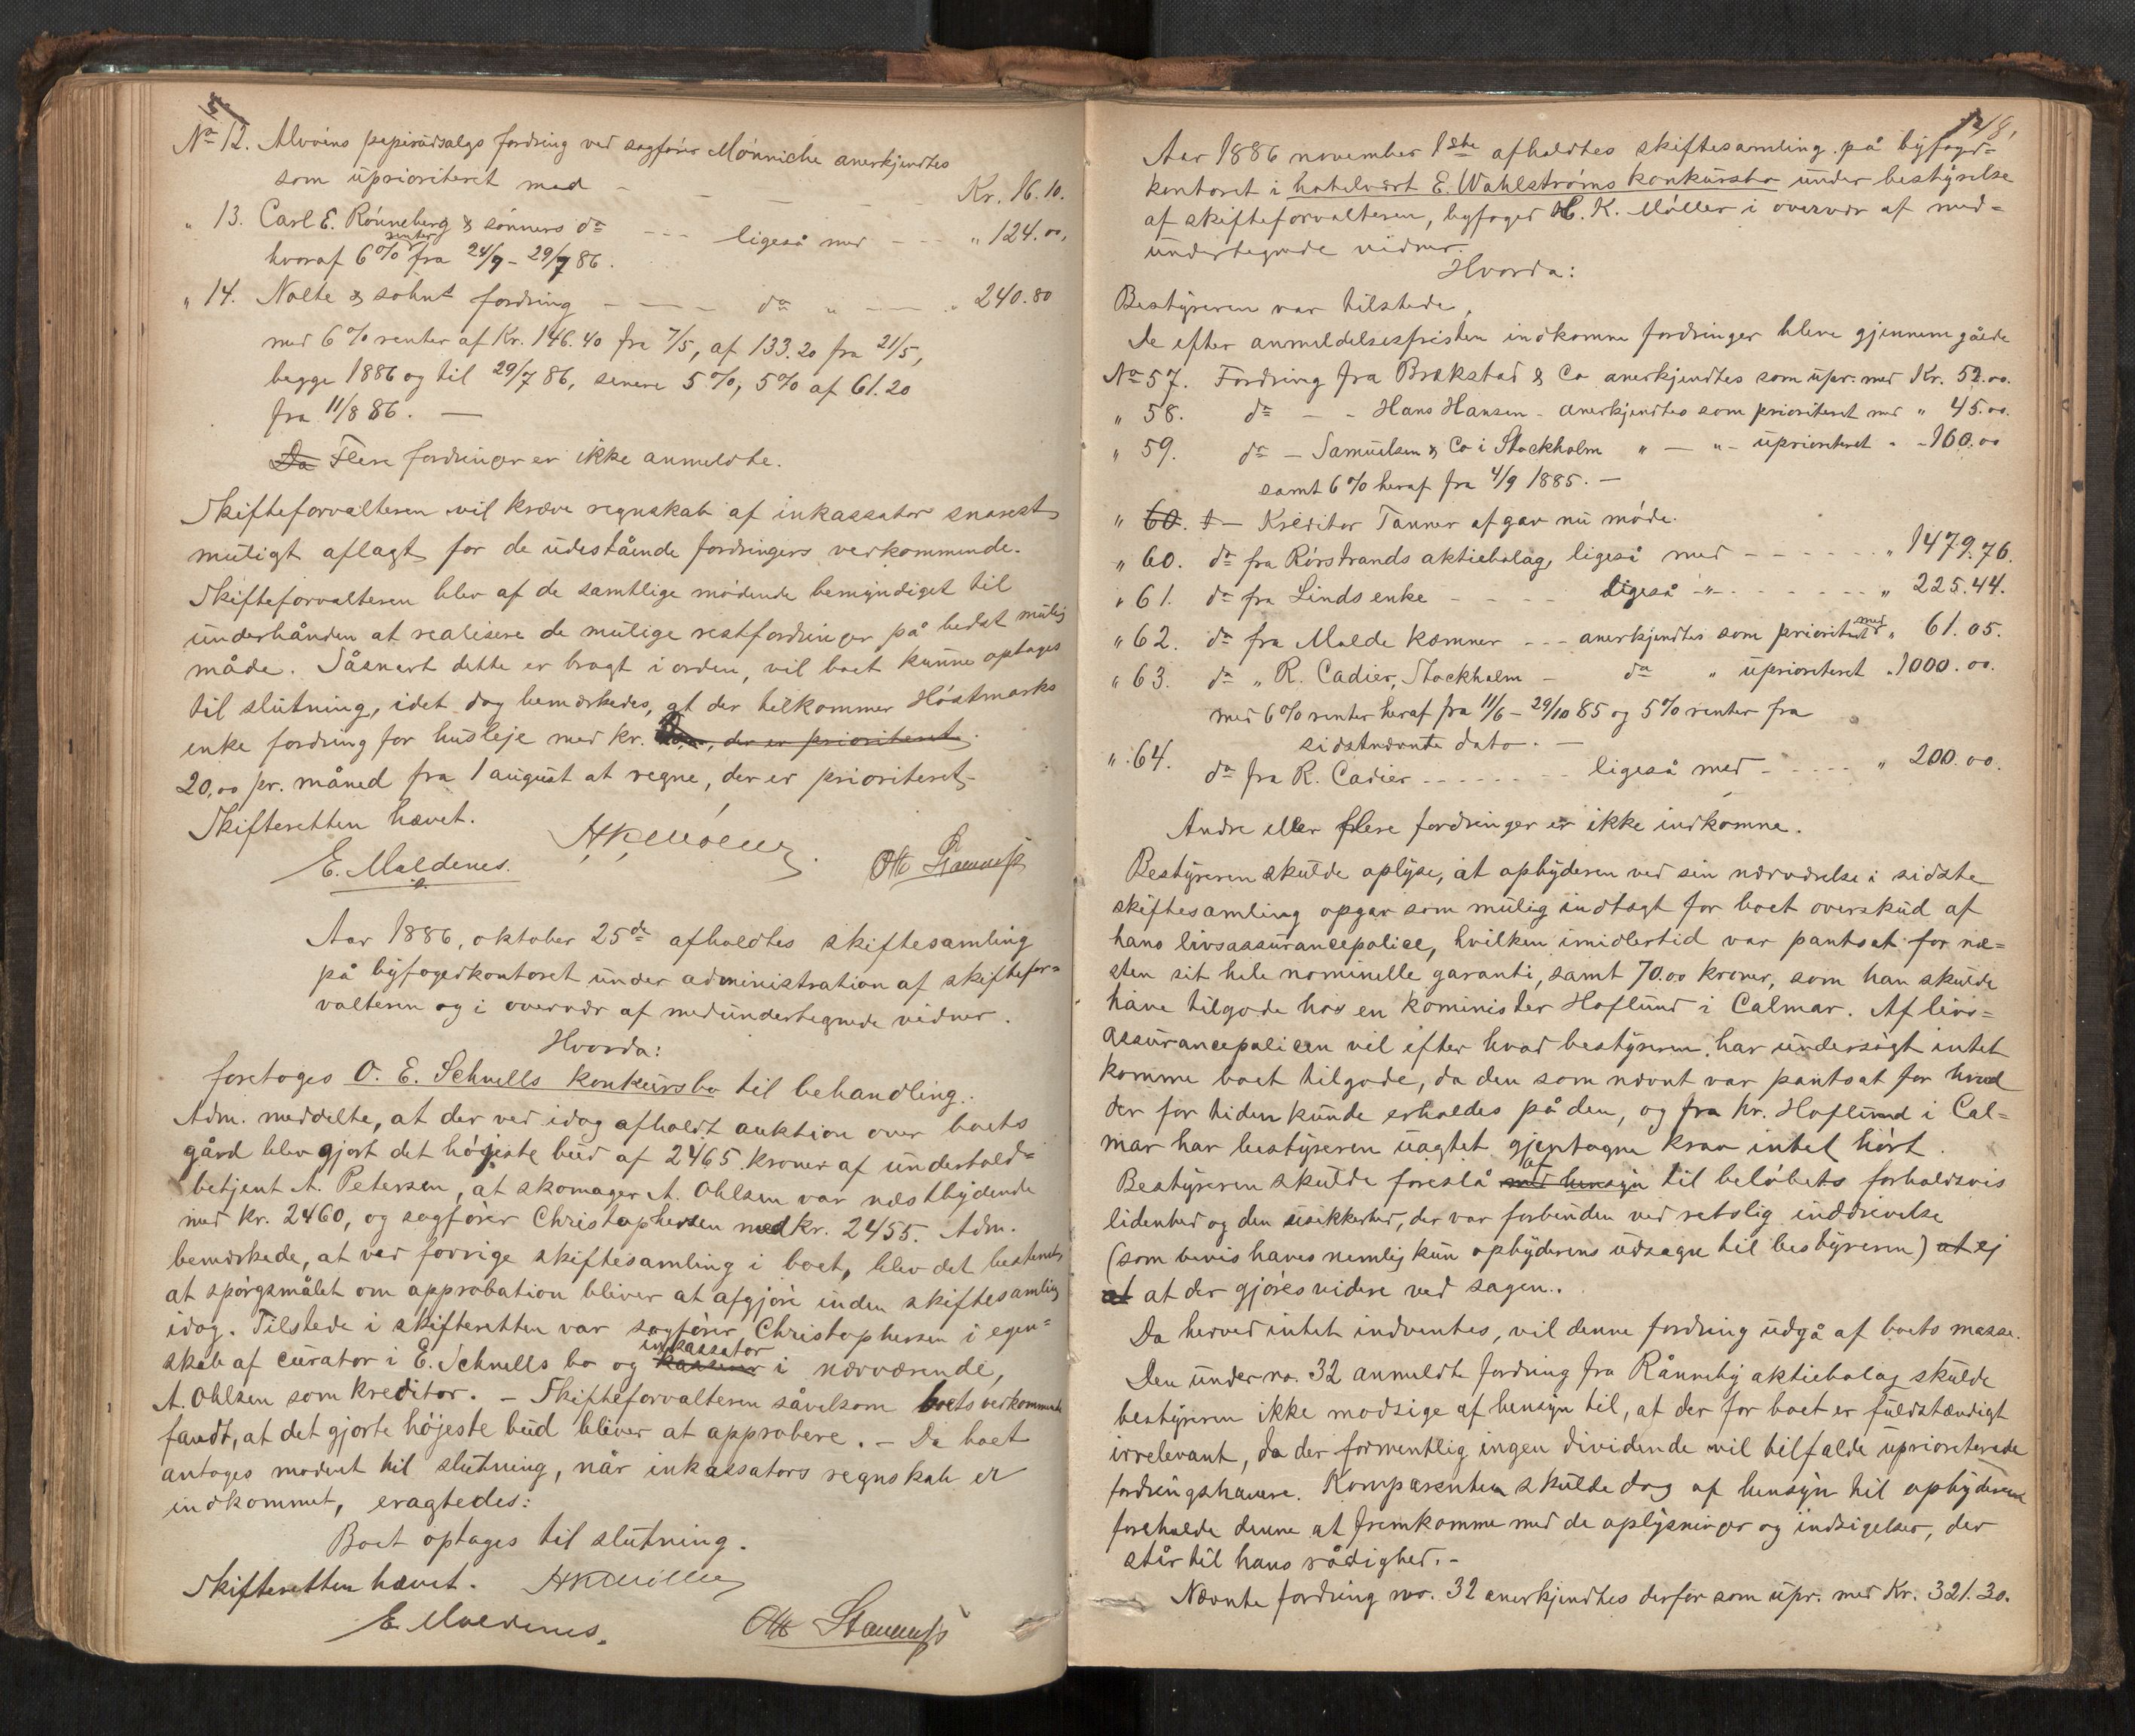 No 12. Alvøens papirudsalgs fordring ved sagfører Mönniche anerkjendtes
som uprioriteret med - - - - - Kr. 16.10.
" 13. Carl E. Rönneberg & sønners do --- ligeså med --- " 124.00,
hvoraf 6% renter fra 24/7 - 29/7 86.
" 14. Nolte & sohns fordring - - - - do " - " 240.80
med 6% renter af Kr. 146.40 fra 7/5, af 133.20 fra 21/5,
begge 1886 og til 29/7 86, senere 5%, 5% af 61.20
fra 11/8 86. -
Da Flere fordringer er ikke anmeldte.
Skifteforvalteren vil kræve regnskab af inkassator snarest
muligt aflagt for de udestående fordringers vedkommende.
Skifteforvalteren blev af de samtlige mødende bemyndiget til
underhånden at realisere de mulige restfordringer på bedst mulig
måde. Såsnart dette er bragt i orden, vil boet kunne optages
til slutning, idet dog bemærkedes, at der tilkommer Höstmarks
enke fordring for husleje med kr. , der er prioriteret.
20,00 pr. måned fra 1 august at regne, der er prioriteret.
Skifteretten hævet.
HKMöller.
E. Moldenes. Ott
Aar 1886, oktober 25de afholdtes skiftesamling
på byfogedkontoret under administration af skiftefor=
valteren og i overvær af medundertegnede vidner.
Hvorda:
foretoges O. E. Schnells konkursbo til behandling.
Adm. meddelte, at der ved idag afholdt auktion over boets
gård blev gjort det höjeste bud af 2465 kroner af underfold=
betjent A. Petersen, at skomager A. Ohlsen var næstbydende
med kr. 2460, og sagfører Christophersen med kr. 2455. Adm.
bemærkede, at ved forrige skiftesamling i boet, blev det bestemt
at spörgsmålet om approbation bliver at afgjöre inden skiftesamling
idag. Tilstede i skifteretten var sagfører Christophersen i egen=
skab af curator i E. Schnells bo og kasserer inkassator i nærværende,
A. Ohlsen som kreditor. - Skifteforvalteren såvelsom boets vedkommende
fandt, at det gjorte höjeste bud bliver at approbere. - Da boet
antoges modent til slutning, når inkassators regnskab er
indkommet, eragtedes:
Boet optages til slutning.
Skifteretten hævet. HKMöller
E. Moldenes. Ott
148,
Aar 1886 november 1ste afholdtes skiftesamling på byfogd=
kontoret i hotelvært E. Wahlströms konkursbo under bestyrelse
af skifteforvalteren, byfoged H. K. Möller i overvær af med=
undertegnede vidner.
Hvorda:
Bestyreren var tilstede.
De efter anmeldelsesfristen indkomne fordringer bleve gjennemgåede
No 57. Fordring fra Brækstad & Co anerkjendtes som upr. med Kr. 52.00.
" 58. do - - Hans Hansen - anerkjendtes som prioriteret med " 45.00.
" 59. do - Samuelsen & Co i Stockholm " - " - uprioriteret " - 160.00
samt 6% heraf fra 4/9 1885. -
" 60. - Kreditor Tanner afgav nu møde.
" 60. do fra Rörstrands aktiebolag, ligeså med - - - - - " 1479.76.
" 61. do fra Linds enke - - - - ligeså " - - - - - " 225.44.
" 62. do fra Molde kæmner --- anerkjendtes som prioriteret med " 61.05.
" 63. do " R. Cadier, Stockholm - do " uprioriteret " 1000.00.
med 6% renter heraf fra 11/6 - 29/10 85 og 5% renter fra
sidstnævnte dato. -
" 64. do fra R. Cadier - - - - - ligeså med - - - - " 200.00.
Andre eller flere fordringer er ikke indkomne.
Bestyreren skulde oplyse, at opbyderen ved sin nærværelse i sidste
skiftesamling opgav som mulig indtægt for boet overskud af
hans livsassurancepolice, hvilken imidlertid var pantsat for næ=
sten sit hele nominelle garanti, samt 70.00 kroner, som han skulde
have tilgode hos en kominister Hoflund i Calmar. Af livs=
assurancepolicen vil efter hvad bestyreren har undersögt intet
komme boet tilgode, da den som nævnt var pantsat for hvad
der for tiden kunde erholdes på den, og fra hr. Hoflund i Cal=
mar har bestyreren uagtet gjentagne krav intet hört.
Bestyreren skulde foreslå med hensyn af til belöbets forholdsvis
lidenhed og den usikkerhed, der var forbunden ved retslig inddrivelse
(som bevis haves nemlig kun opbyderens udsagn til bestyreren) at ej
at at der gjöres videre ved sagen.
Da herved intet indventes, vil denne fordring udgå af boets masse.
Den under no. 32 anmeldte fordring fra Rånneby aktiebolag skulde
bestyreren ikke modsige af hensyn til, at der for boet er fuldstændigt
irrelevant, da der formentlig ingen dividende vil tilfalde uprioriterede
fordringshavere. Komparenten skulde dog af hensyn til opbyderen
foreholde denne at fremkomme med de oplysninger og indsigelser, der
står til hans rådighed. -
Nævnte fordring no. 32 anerkjendtes derfor som upr. med Kr. 321.30.